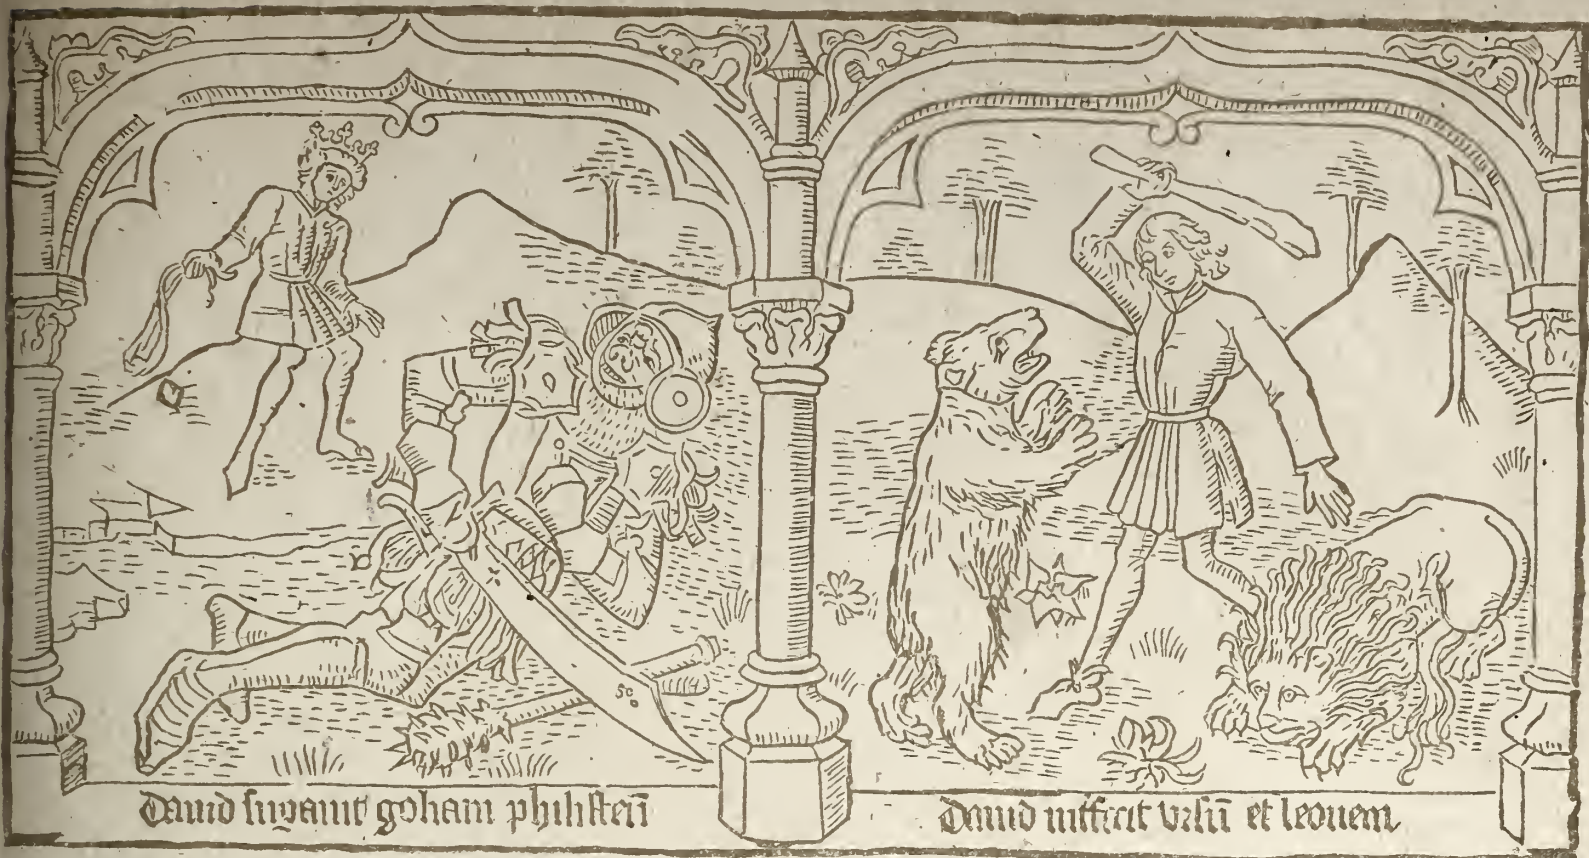 Dauid sugauit goliam philisteū
Dauid inffecit vrsū et leonem